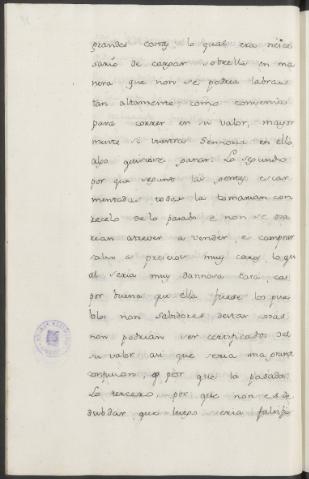 grandes costas lo qual era nece
sario de cargar sobrella en ma
nera que non se podria labrar
tan altamente como convenia
para correr en su valor, mayor
mente si vuestra Sennoria en ella
algo quisiere ganar. Lo segundo
por que segunt las gentes escar
mentadas todas la tomarian con
recelo de lo pasado e non se osa
rian atrever a vender, e comprar
salvo a precios muy caros, lo qu
al seria muy dannosa cosa, ca
por buena que ella fuese los pue
blos non sabidores destas cosas
non podrian ser certificados del
su valor asi que seria mayor
confusion, que por que la pasada.
Lo tercero, por que non es de
dubdar que luego seria falsifi